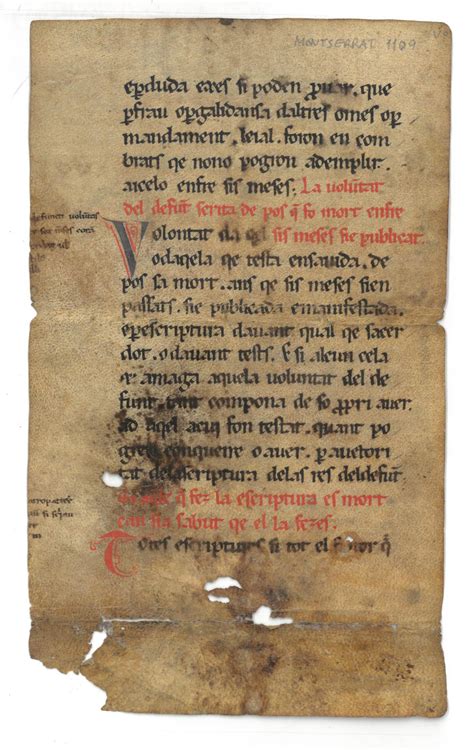 MONTSERRAT 1109
perduda eres si poden prouar. que
perfrau opergalidansa daltres omes oper
mandament. leial. foron en com
brats qe nono pogron ademplir.
aicelo enfre sis meses. La volūtat
del defūt scrita de pos q̄ fo mort enfre
Volontat sis meses sie publicat.
odaqela qe testa ensauida. de
pos sa mort. ans qe sis meses sien
passats. sie publicada emanifestada.
operescriptura dauant qual qe sacer
dot. odauant tests. E si alcun cela
amaga aquela voluntat del de
funt. tant compona de so propri auer.
ad aqel acui fon testat. quant po
conquerre o auer. per auctori
tat del escriptura delas res deldefūt.
q̄ fez la escriptura es mort
sabut qe el la fezes.
Totes escriptures si tot el q̄